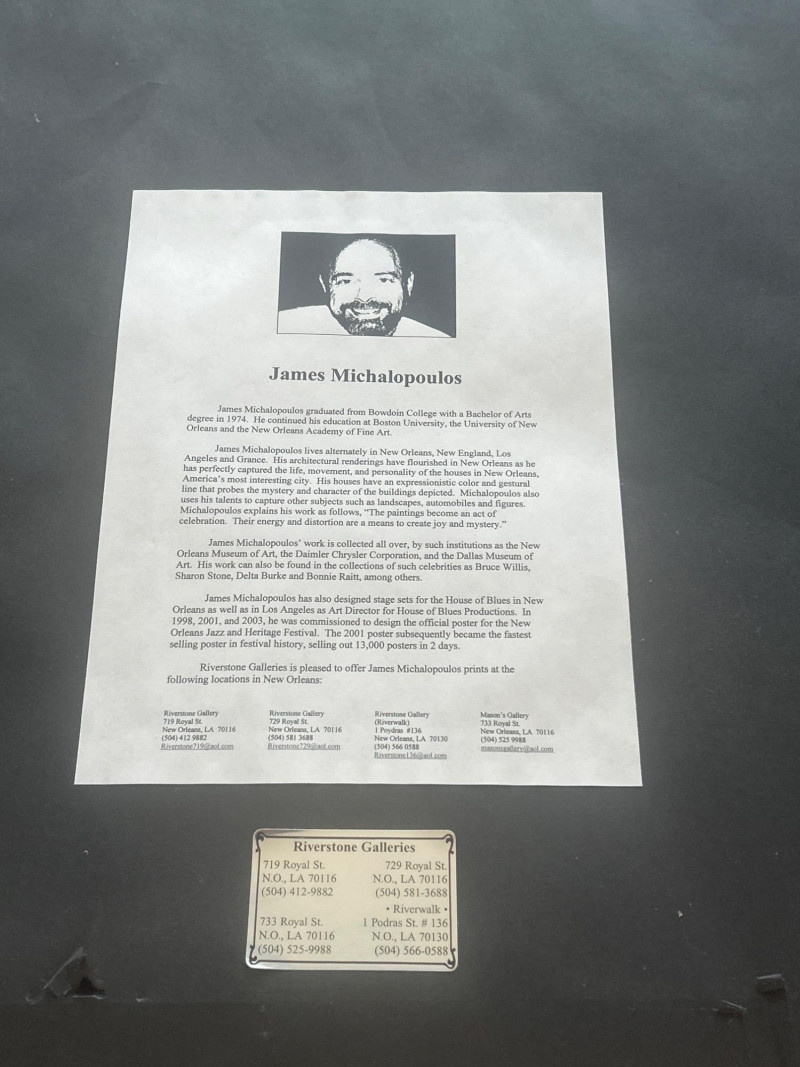 James Michalopoulos
James Michalopoulos graduated from Bowdoin College with a Bachelor of Arts
degree in 1974. He continued his education at Boston University, the University of New
Orleans and the New Orleans Academy of Fine Art.
James Michalopoulos lives alternately in New Orleans, New England, Los
Angeles and Grance. His architectural renderings have flourished in New Orleans as he
has perfectly captured the life, movement, and personality of the houses in New Orleans,
America's most interesting city. His houses have an expressionistic color and gestural
line that probes the mystery and character of the buildings depicted. Michalopoulos also
uses his talents to capture other subjects such as landscapes, automobiles and figures.
Michalopoulos explains his work as follows, "The paintings become an act of
celebration. Their energy and distortion are a means to create joy and mystery."
James Michalopoulos' work is collected all over, by such institutions as the New
Orleans Museum of Art, the Daimler Chrysler Corporation, and the Dallas Museum of
Art. His work can also be found in the collections of such celebrities as Bruce Willis,
Sharon Stone, Delta Burke and Bonnie Raitt, among others.
James Michalopoulos has also designed stage sets for the House of Blues in New
Orleans as well as in Los Angeles as Art Director for House of Blues Productions. In
1998, 2001, and 2003, he was commissioned to design the official poster for the New
Orleans Jazz and Heritage Festival. The 2001 poster subsequently became the fastest
selling poster in festival history, selling out 13,000 posters in 2 days.
Riverstone Galleries is pleased to offer James Michalopoulos prints at the
following locations in New Orleans:
Riverstone Gallery
719 Royal St.
New Orleans, LA 70116
(504) 412 9882
Riverstone719@aol.com
Riverstone Gallery
729 Royal St.
New Orleans, LA 70116
(504) 581 3688
Riverstone729@aol.com
Riverstone Gallery
(Riverwalk)
1 Poydras #136
New Orleans, LA 70130
(504) 566 0588
Riverstone136@aol.com
Mason's Gallery
733 Royal St.
New Orleans, LA 70116
(504) 525 9988
masonsgallery@aol.com
Riverstone Galleries
719 Royal St.
N.O., LA 70116
(504) 412-9882
729 Royal St.
N.O., LA 70116
(504) 581-3688
733 Royal St.
N.O., LA 70116
(504) 525-9988
• Riverwalk •
1 Podras St. # 136
N.O., LA 70130
(504) 566-0588